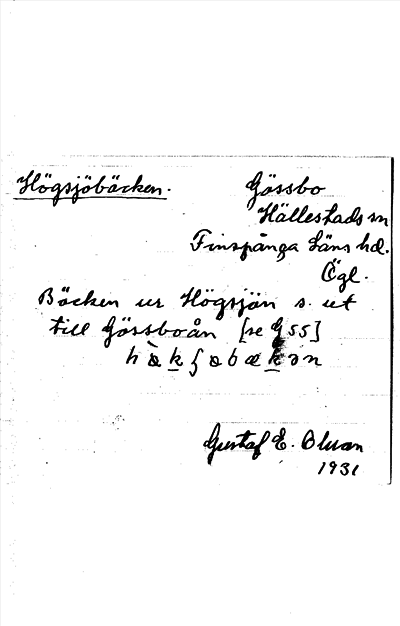 Högsjöbäcken. Gössbo
Hällestads sn
Finspånga Läns hd.
Ögl.
Bäcken ur Högsjön s. ut
till Gössboån [se G 55]
Gustaf E. Oluan
1931